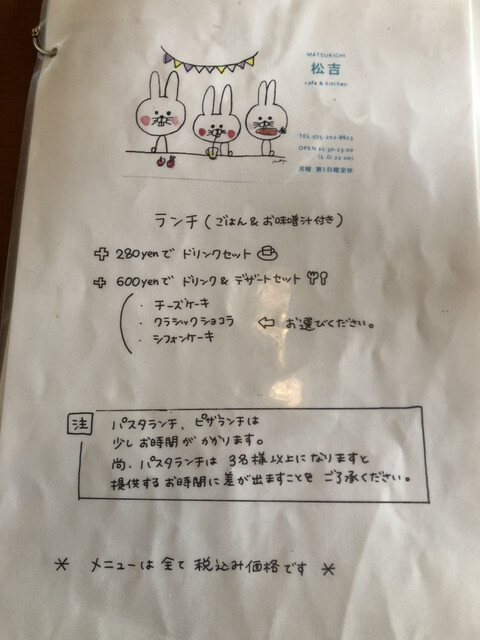 MATSUKICHI
松吉
cafe & kitchen
TEL 075-202-8823
OPEN 11:30-23:00
(L.O 22:00)
月曜 第3日曜定休
ランチ(ごはん&お味噌汁付き)
+ 280yenで ドリンクセット
+ 600yenで ドリンク & デザートセット
・ チーズケーキ
・ クラシックショコラ ⇦ お選びください。
・ シフォンケーキ
注 パスタランチ、ピザランチは
少しお時間が かかります。
尚、パスタランチは 3名様以上になりますと
提供するお時間に差が出ますことを ご了承ください。
* メニューは全て税込み価格です *